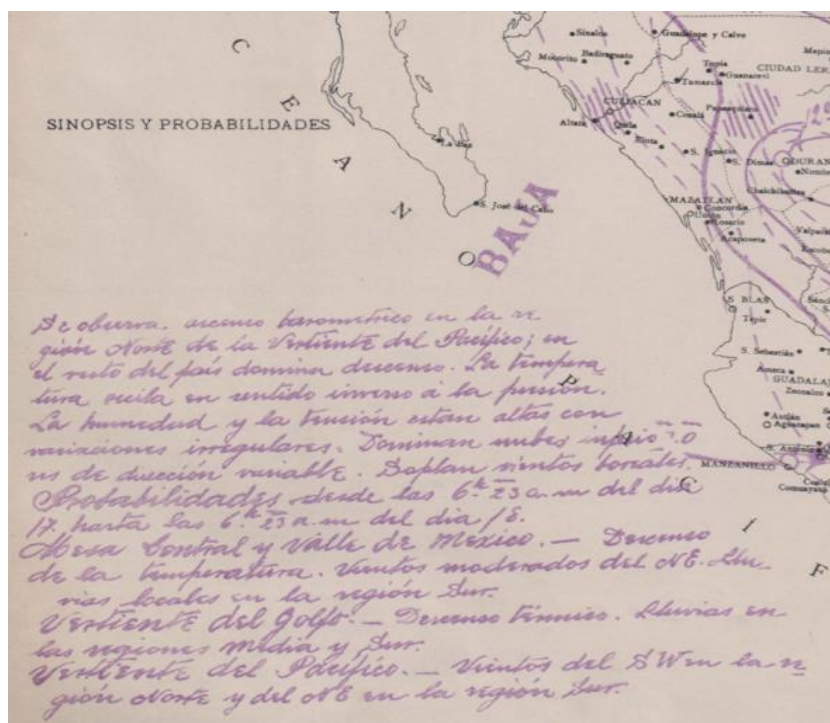 C E A N O
P A C I F
Sinaloa
Guadalupe y Calvo
Mocorito
Badiraguato
Topia
CIUDAD LER
Guanacevi
Tamazula
CULIACAN
Papasquiaro
Altata
Quila
Cosalá
Elota
S. Ignacio
S. Dimas
DURAN
Nomb
Chalchihuites
SINOPSIS Y PROBABILIDADES
La Paz
S. José del Cabo
BAJA
MAZATLAN
Concordia
Union
Rosario
Acaponeta
Valpar
S BLAS
Tepic
S. Sebastián
Ameca
GUADALA
Zacoalco
Autlán
MANZANILLO
Se observa. ascenso barometrico en la re
gión Norte de la Vertiente del Pacífico; en
el resto del país domina descenso. La tempera
tura oscila en sentido inverso á la presion.
La humedad y la tensión estan altas con
variaciones irregulares. Dominan nubes inferio
res de dirección variable. Soplan vientos boreales.
Probabilidades desde las 6h 23 a.m del dia
17. hasta las 6h 23 a.m del dia 18.
Mesa Central y Valle de Mexico. — Descenso
de la temperatura. Vientos moderados del NE. Llu
vias locales en la región Sur.
Vertiente del Golfo. — Descenso térmico. Lluvias en
las regiones Media y Sur.
Vertiente del Pacífico. — Vientos del SW en la re
gión Norte y del NE en la región Sur.